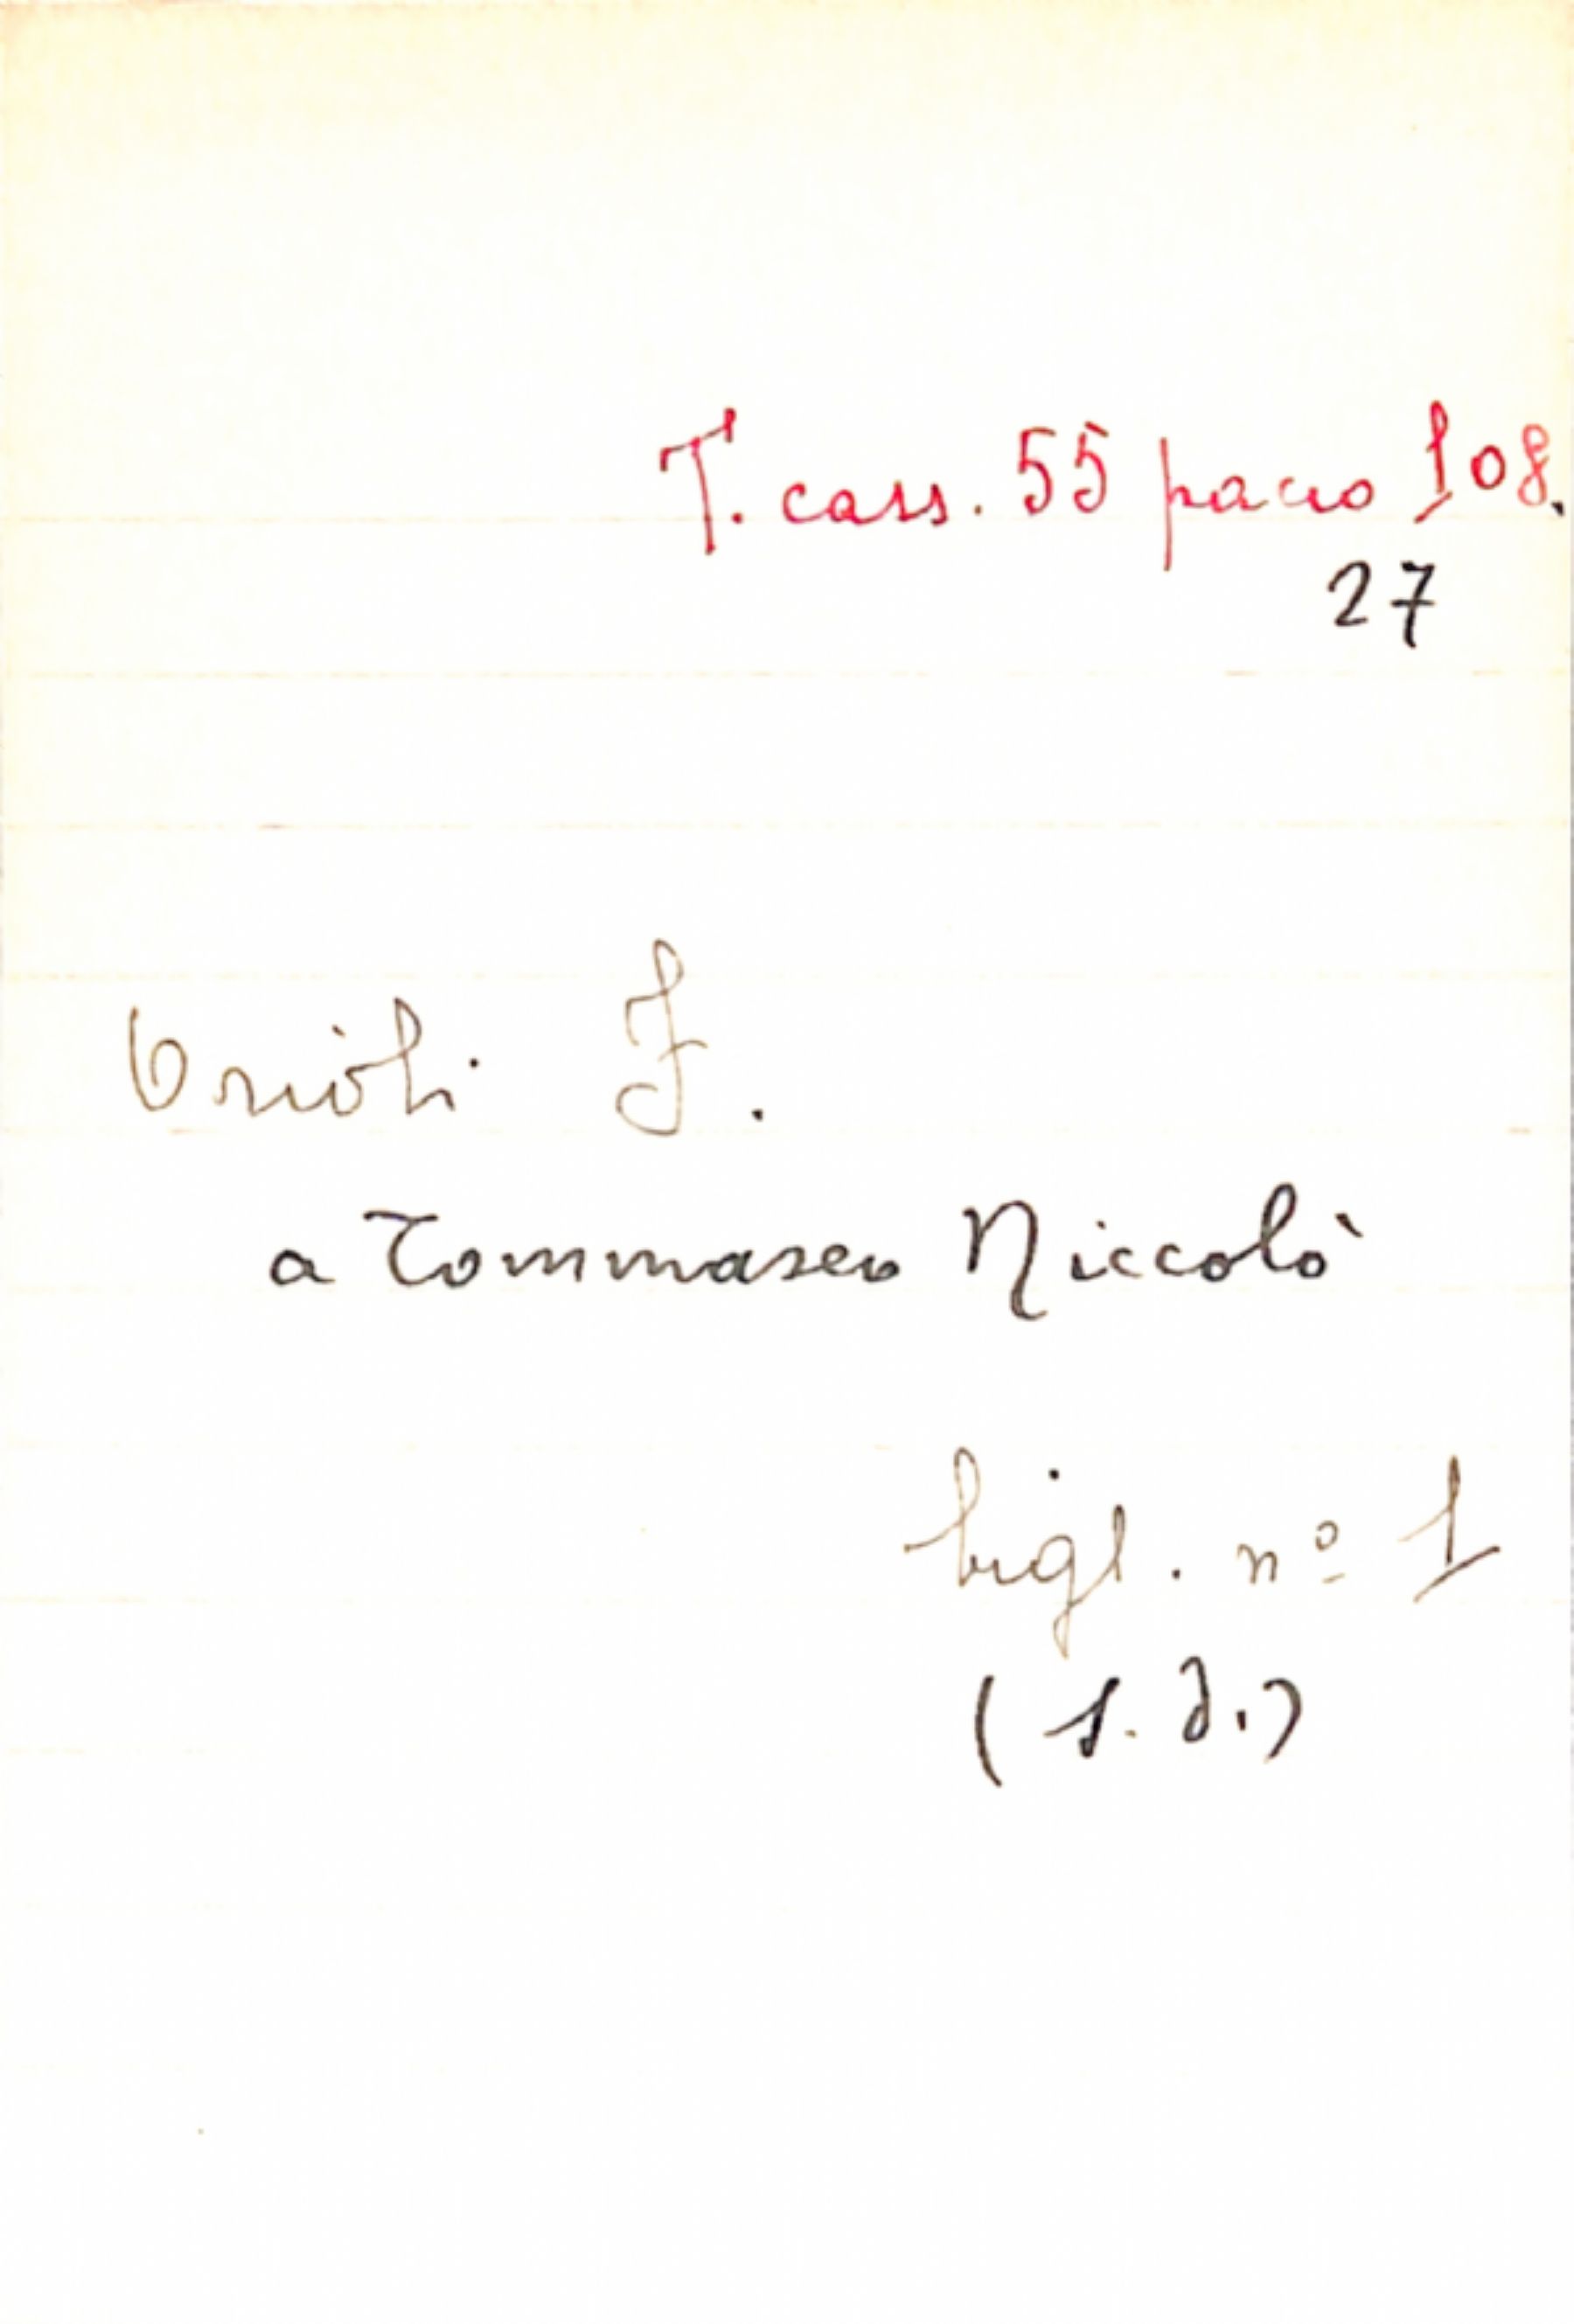 T. cass. 55 pacco 108.
27
Orioli F.
a Tommaseo Niccolò
bigl. nº 1
(s. d.)